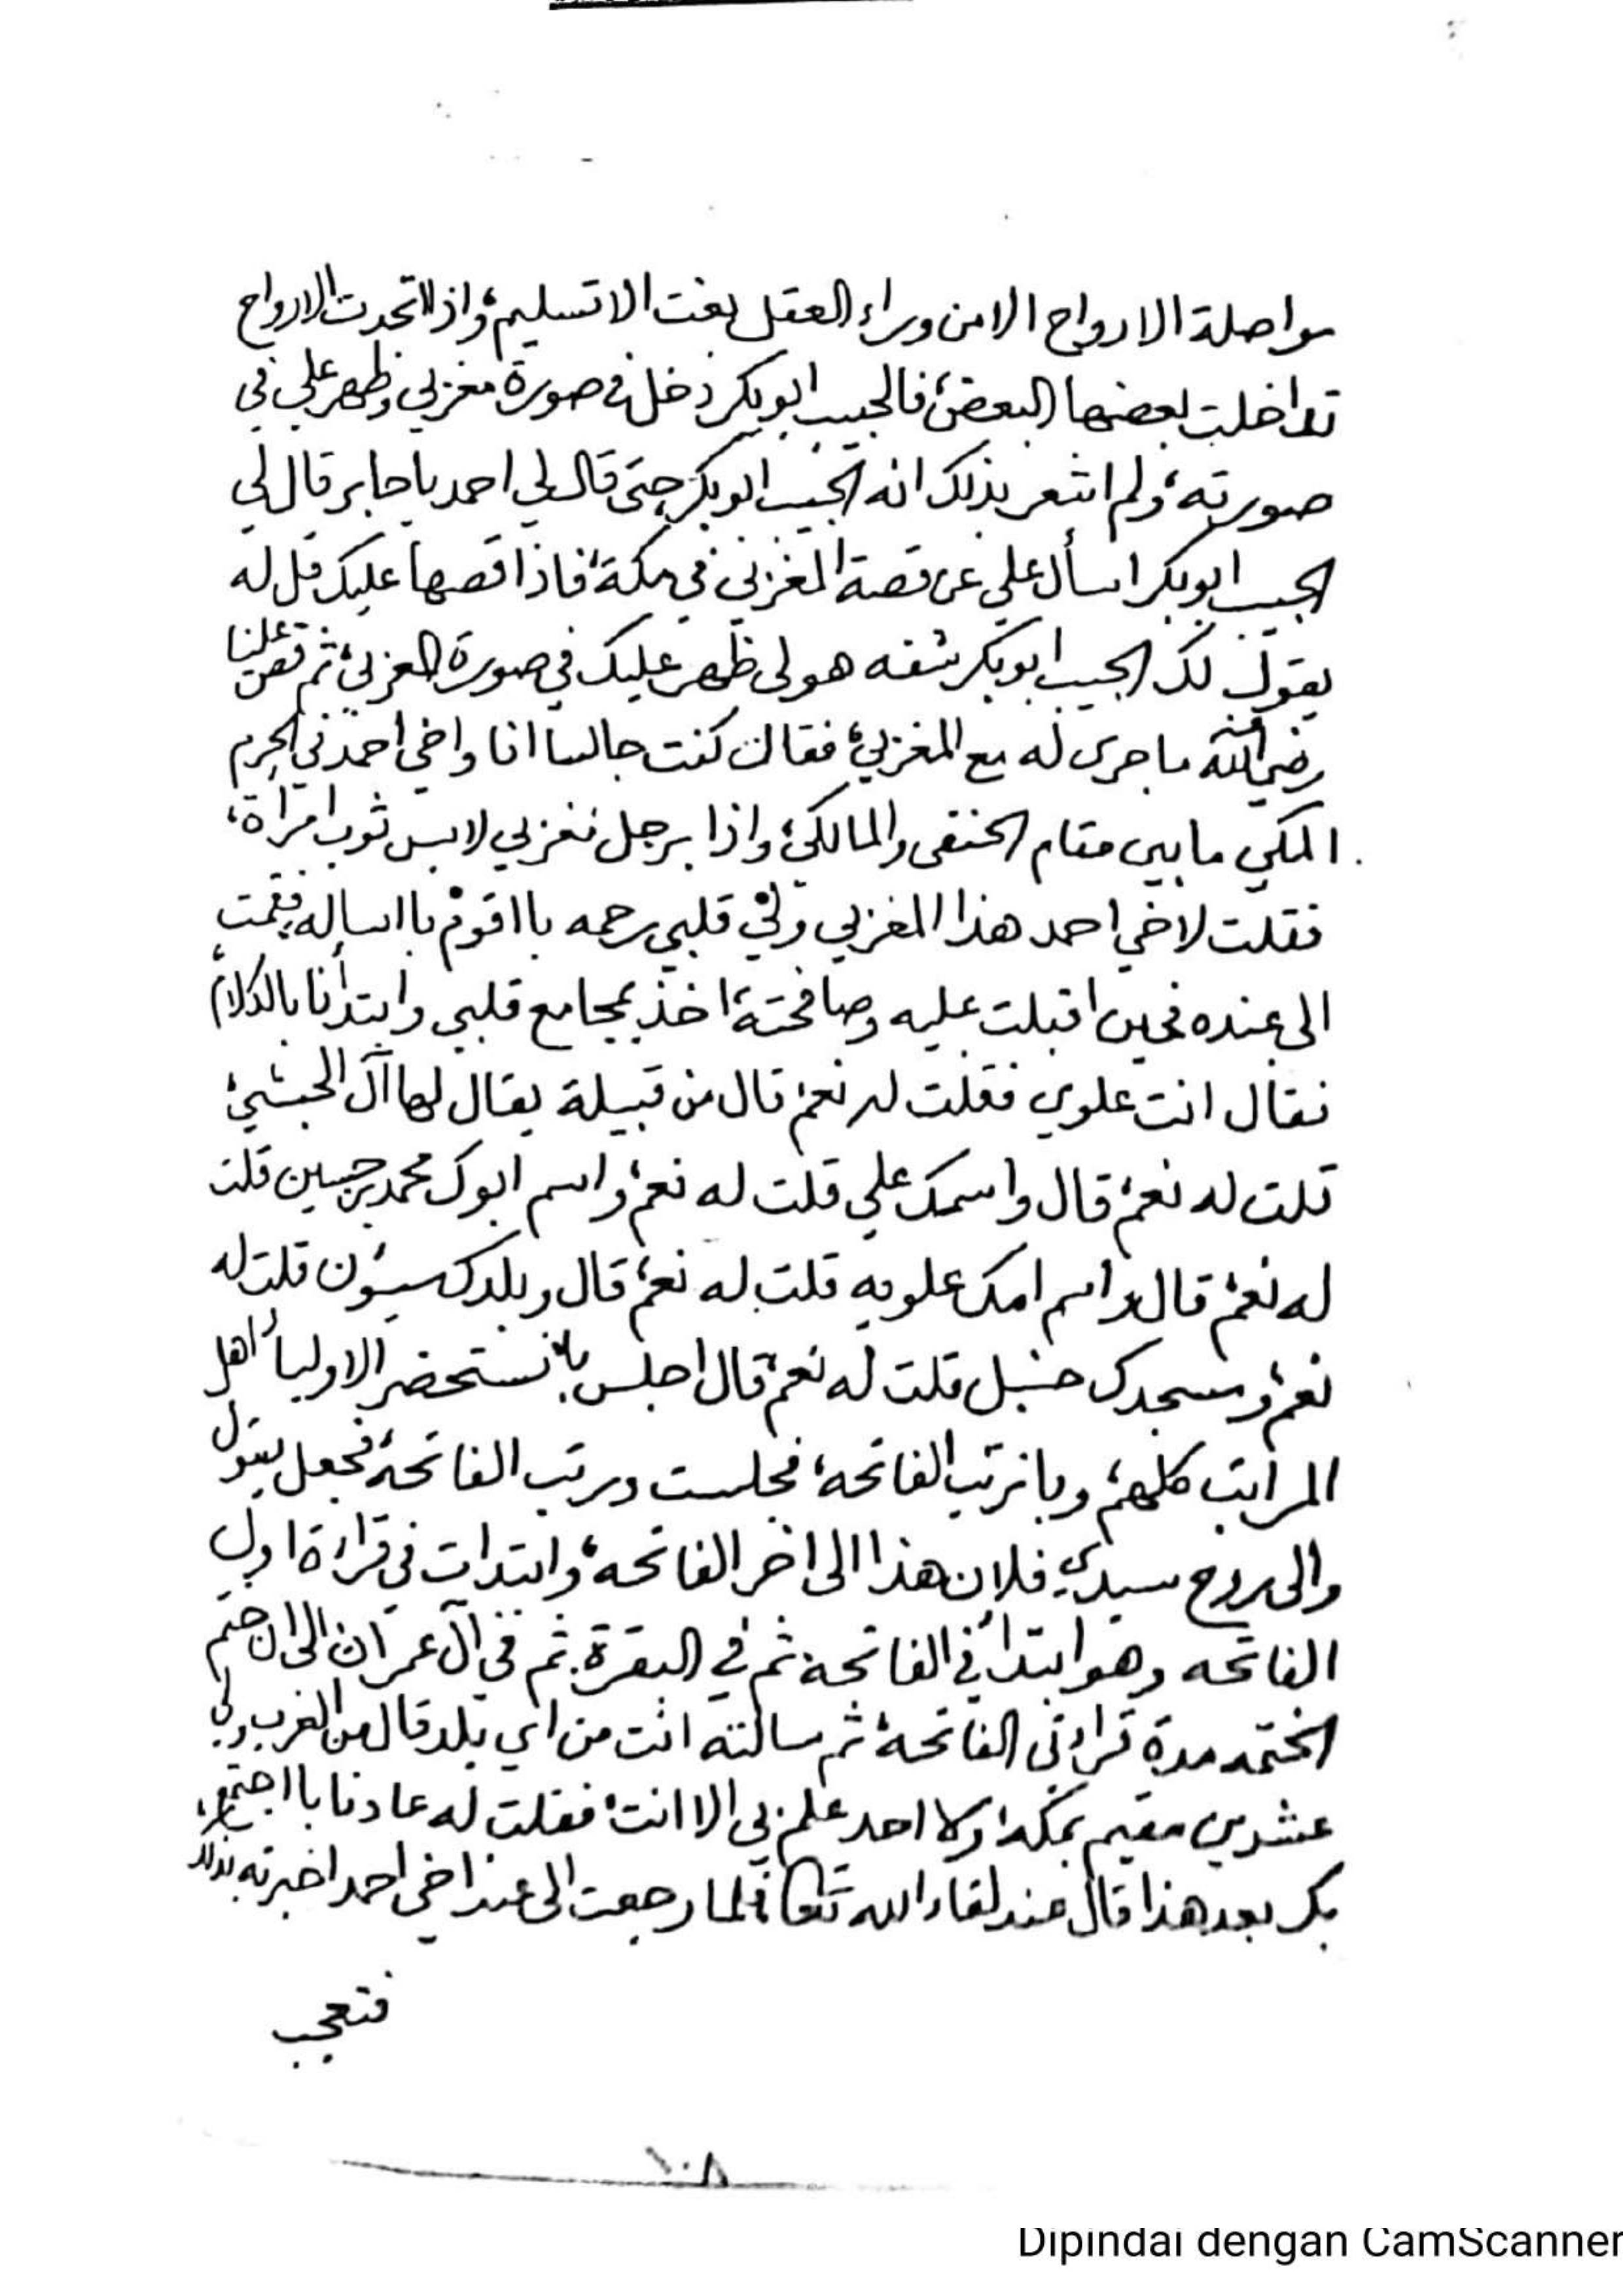 مواصلة الارواح الا من وراء العقل بغت الا تسليم، واذا اتحدت الارواح
تداخلت بعضها البعض، فالحبيب ابوبكر دخل في صورة مغربي وظهر علي في
صورته، ولم اشعر بذلك انه الحبيب ابوبكر حتى قال لي احمد باجابر قال لي
الحبيب ابوبكر اسأل علي عن قصة المغربي في مكة، فاذا قصها عليك قل له
يقول لك الحبيب ابوبكر شفه هو لي ظهر عليك في صورة المغربي، ثم قص علينا
رضي الله عنه ما جرى له مع المغربي، فقال كنت جالسا انا واخي احمد في الحرم
المكي ما بين مقام الحنفي والمالكي، واذا برجل مغربي لابس ثوب امرأة،
فقلت لاخي احمد هذا المغربي وقع في قلبي رحمه با اقوم با اساله فقمت
الى عنده فحين اقبلت عليه وصافحته، اخذ بمجامع قلبي وابتدأنا بالكلام،
فقال انت علوي فقلت له نعم، قال من قبيلة يقال لها آل الحبشي،
قلت له نعم، قال واسمك علي قلت له نعم، واسم ابوك محمد بن حسين قلت
له نعم، قال واسم امك علويه قلت له نعم، قال وبلدك سيؤن قلت له
نعم، ومسجدك حنبل قلت له نعم، قال اجلس با نستحضر الاولياء اهل
المراتب كلهم، وبا نرتب الفاتحه، فجلست ورتب الفاتحة، فجعل يقول
والى روح سيدي فلان هذا الى اخر الفاتحه، وابتدات في قراءة اول
الفاتحه وهو ابتدأ في الفاتحة ثم في البقرة، ثم في آل عمران الى ان ختم
الختمه مدة قراءتي الفاتحة، ثم سالته انت من اي بلد قال من المغرب ولي
عشرين مقيم بمكه، ولا احد علم بي الا انت، فقلت له عادنا با اجتمع،
بكر بعد هذا قال عند لقاء الله تعالى، فلما رجعت الى عند اخي احمد اخبرته بذلك
فتعجب
١٠٨
Dipindai dengan CamScanner